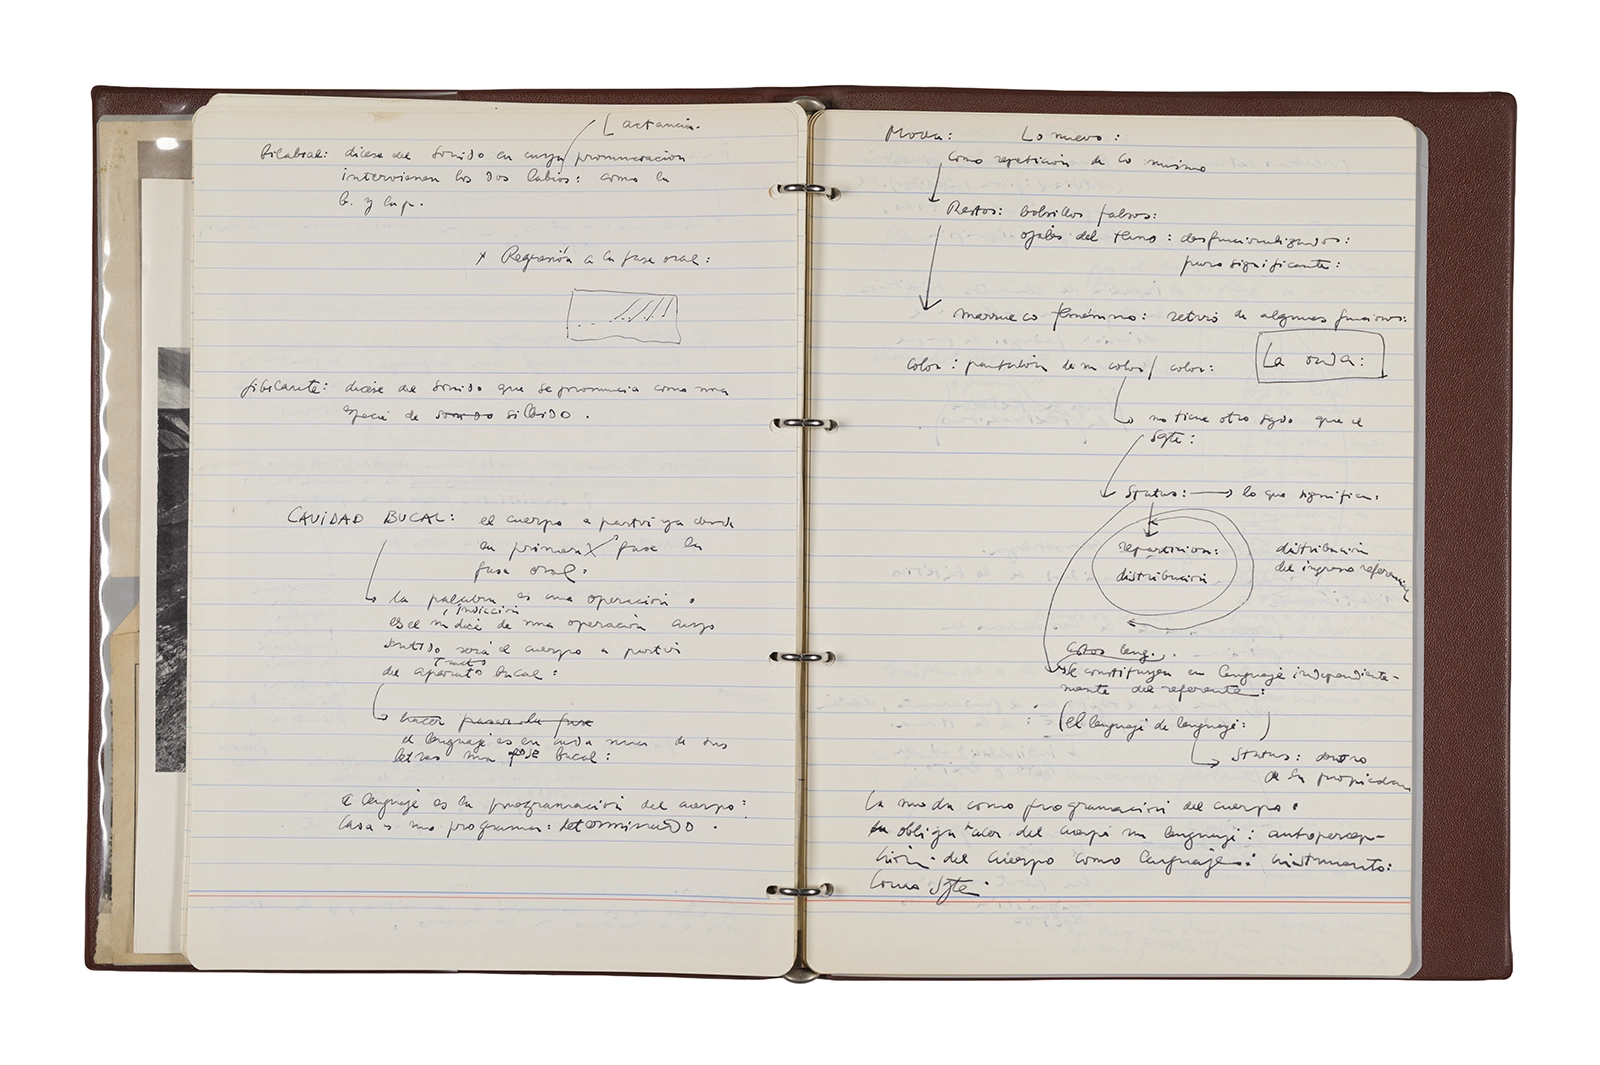 Lactancia.
Bilabial: dícese del sonido en cuya pronunciación
intervienen los dos labios: como la
b. y la p.
x Regresión a la fase oral:
sibilante: dícese del sonido que se pronuncia como una
especie de sonido silbido.
CAVIDAD BUCAL: el cuerpo a partir ya desde
su primera fase la
fase oral:
la palabra es una operación.
, indicción
es el índice de una operación cuyo
sentido será el cuerpo a partir
tracto
del aparato bucal:
hacer pasar la fase
el lenguaje es en cada una de sus
letras una pose bucal:
el lenguaje es la programación del cuerpo:
cada es un programa: determinado.
Moda: Lo nuevo:
como repetición de lo mismo
Restos: bolsillos falsos:
ojales del terno: desfuncionalizados:
puro significante:
marrueco femenino: retiro de algunas funciones:
color: pantalón de un color / color:
La onda:
no tiene otro sgdo que el
sgte:
Status: → lo que significa:
repartición:
distribución
distribución
del ingreso referencia
estos leng.
se constituyen en lenguaje independiente-
mente del referente:
(el lenguaje de lenguaje:)
Status: dentro
de la propiedad
La moda como programación del cuerpo:
obliga hacer del cuerpo un lenguaje: autopercep-
ción del cuerpo como lenguaje: instrumento:
como sgte.